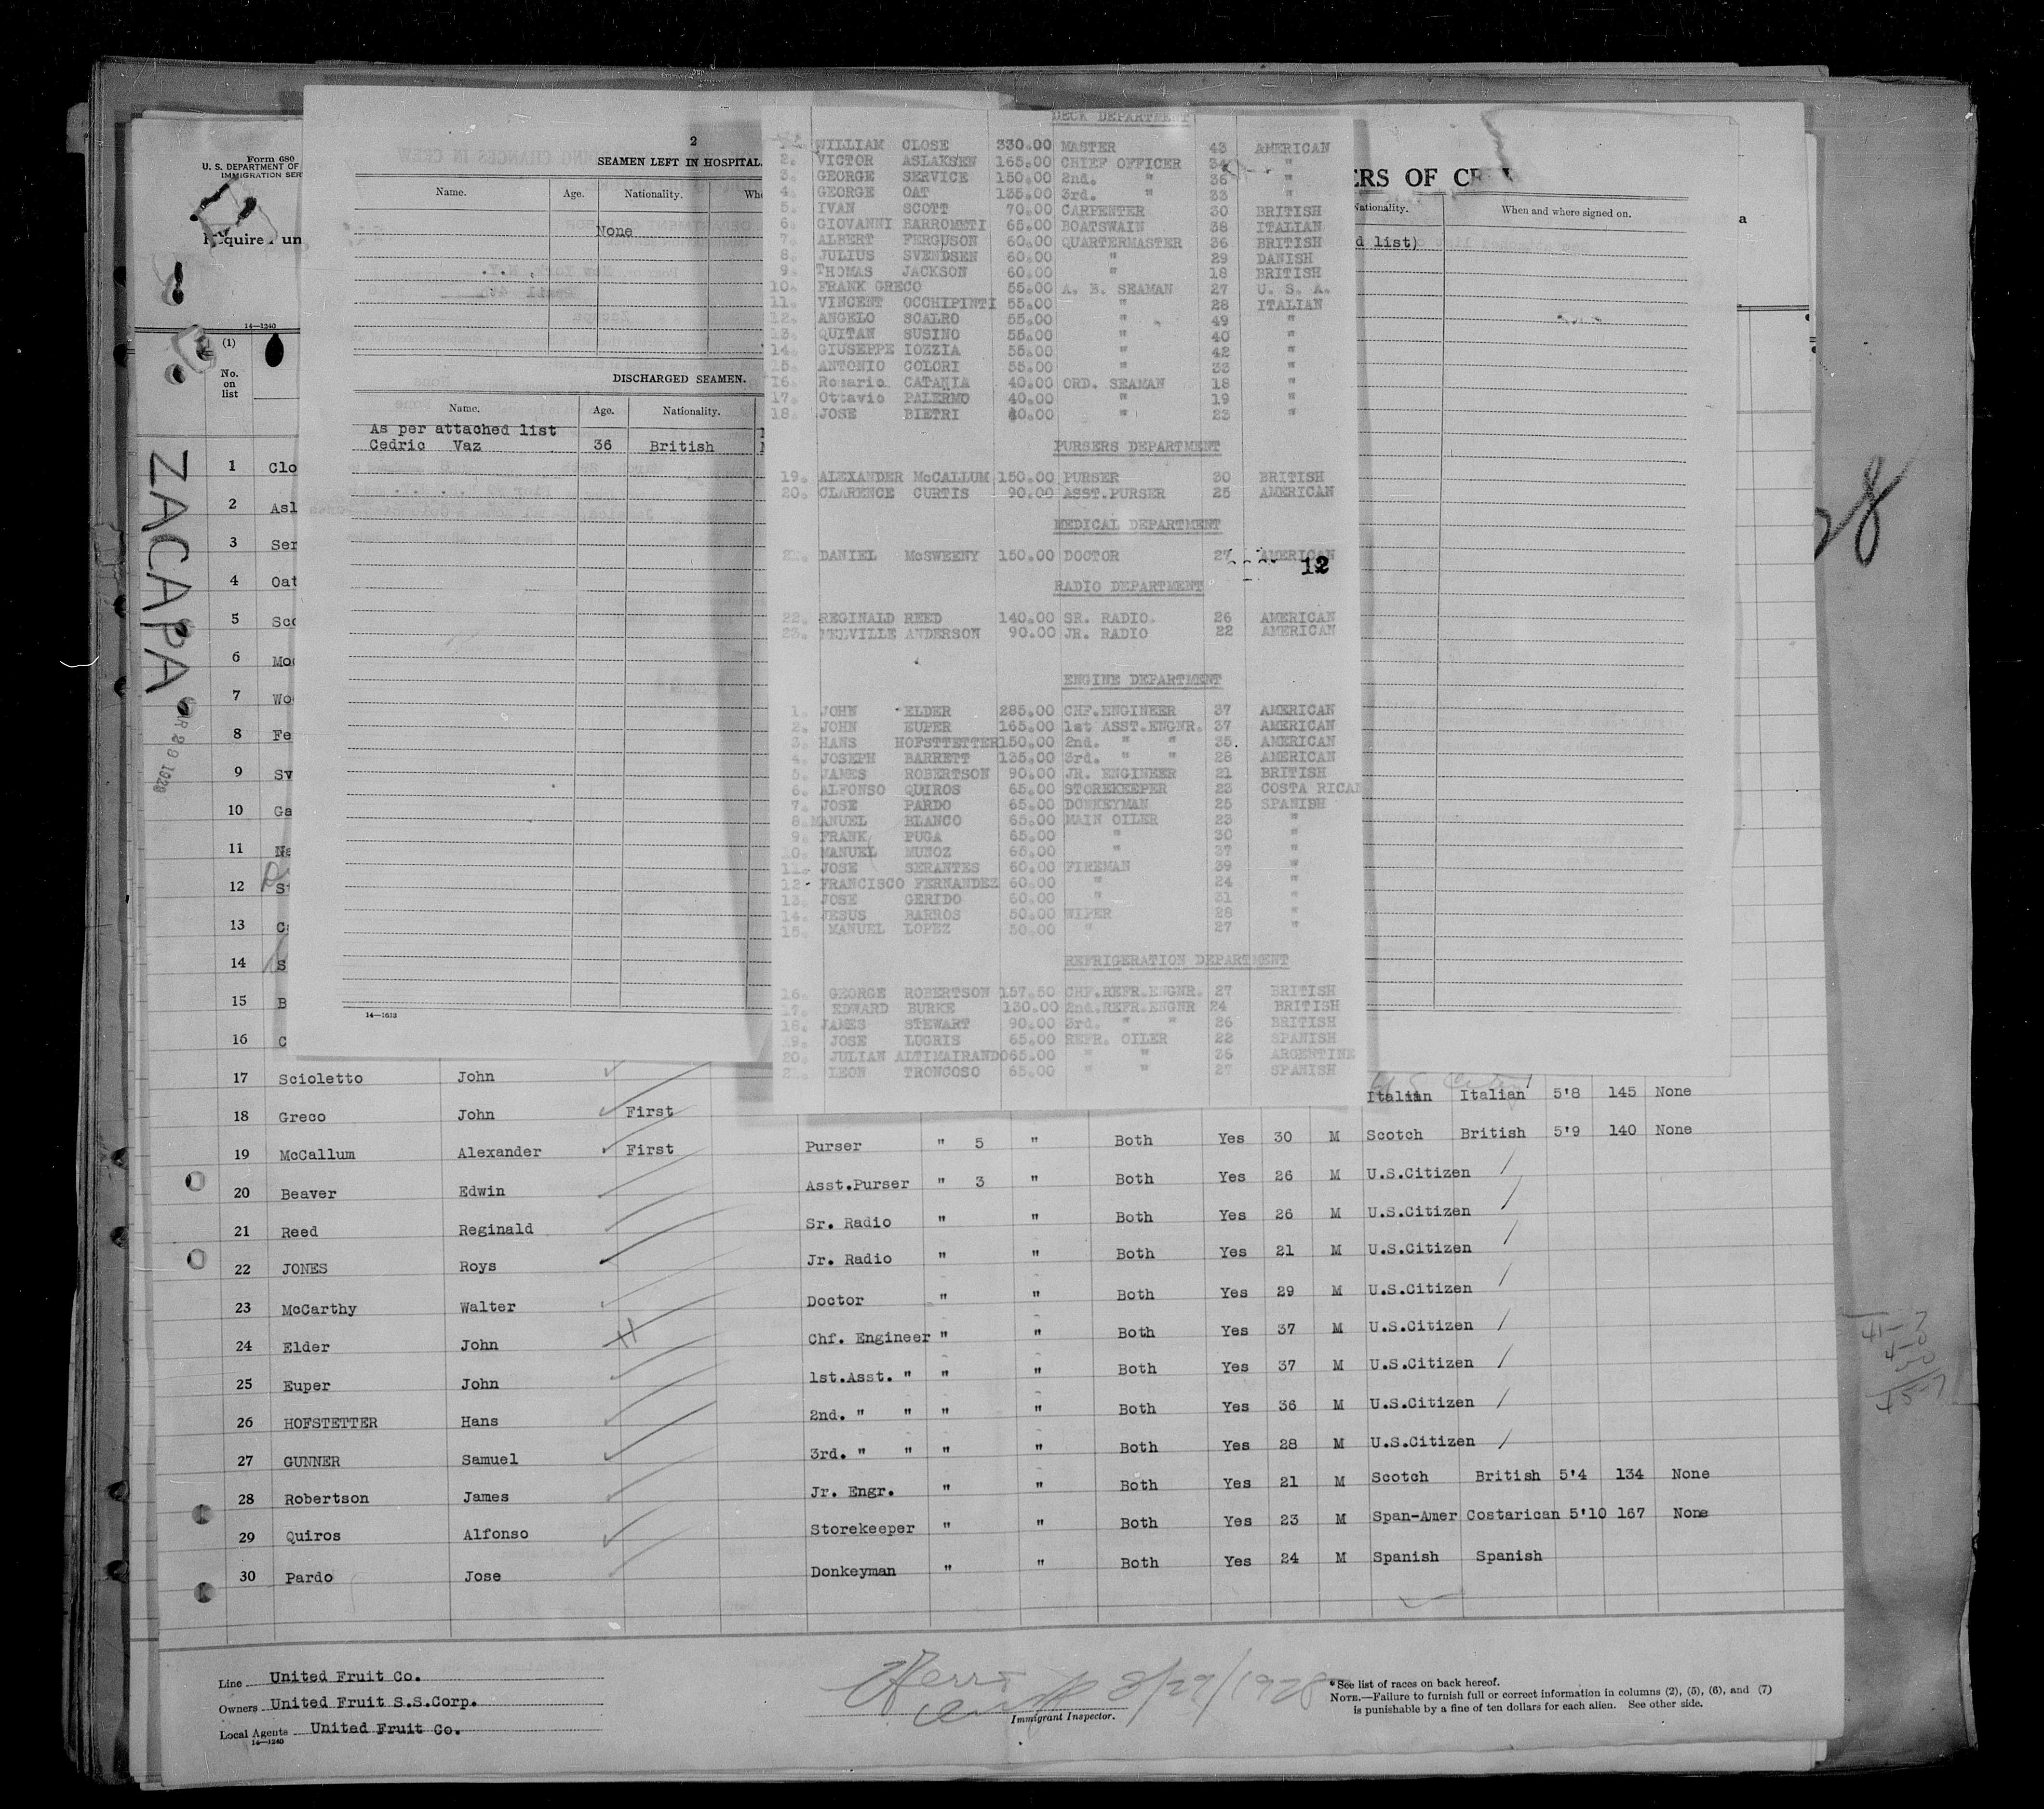 Form 680
U. S. DEPARTMENT OF
IMMIGRATION SER
quire un
14—1240
(1)
No.
on
list
ZACAPA
1 Clo
2 Asl
3 Ser
4 Oat
5 Sco
6 Moo
7 Woo
8 Fe
9 Sv
10 Ga
11 Na
12 St
13 Ca
14 S
15 B
16 C
2
SEAMEN LEFT IN HOSPITAL.
Name. Age. Nationality. Whe
None
DISCHARGED SEAMEN.
Name. Age. Nationality.
As per attached list
Cedric Vaz 36 British
14—1613
DECK DEPARTMENT
WILLIAM CLOSE 330.00 MASTER 43 AMERICAN
2. VICTOR ASLAKSEN 165.00 CHIEF OFFICER 34 "
3. GEORGE SERVICE 150.00 2nd. " 36 "
4. GEORGE OAT 135.00 3rd. " 33 "
5. IVAN SCOTT 70.00 CARPENTER 30 BRITISH
6. GIOVANNI BARROMETI 65.00 BOATSWAIN 38 ITALIAN
7. ALBERT FERGUSON 60.00 QUARTERMASTER 36 BRITISH
8. JULIUS SVENDSEN 60.00 " 29 DANISH
9. THOMAS JACKSON 60.00 " 18 BRITISH
10. FRANK GRECO 55.00 A. B. SEAMAN 27 U. S. A.
11. VINCENT OCCHIPINTI 55.00 " 28 ITALIAN
12. ANGELO SCALRO 55.00 " 49 "
13. QUITAN SUSINO 55.00 " 40 "
14. GIUSEPPE IOZZIA 55.00 " 42 "
15. ANTONIO COLORI 55.00 " 33 "
16. Rosario CATANIA 40.00 ORD. SEAMAN 18 "
17. Ottavio PALERMO 40.00 " 19 "
18. JOSE BIETRI 40.00 " 23 "
PURSERS DEPARTMENT
19. ALEXANDER McCALLUM 150.00 PURSER 30 BRITISH
20. CLARENCE CURTIS 90.00 ASST.PURSER 25 AMERICAN
MEDICAL DEPARTMENT
21. DANIEL McSWEENY 150.00 DOCTOR 27 AMERICAN
12
RADIO DEPARTMENT
22. REGINALD REED 140.00 SR. RADIO. 26 AMERICAN
23. MELVILLE ANDERSON 90.00 JR. RADIO 22 AMERICAN
ENGINE DEPARTMENT
1. JOHN ELDER 285.00 CHF.ENGINEER 37 AMERICAN
2. JOHN EUPER 165.00 1st ASST.ENGNR. 37 AMERICAN
3. HANS HOFSTTETTER 150.00 2nd. " " 35. AMERICAN
4. JOSEPH BARRETT 135.00 3rd. " " 28 AMERICAN
5. JAMES ROBERTSON 90.00 JR. ENGINEER 21 BRITISH
6. ALFONSO QUIROS 65.00 STOREKEEPER 23 COSTA RICAN
7. JOSE PARDO 65.00 DONKEYMAN 25 SPANISH
8. MANUEL BLANCO 65.00 MAIN OILER 23 "
9. FRANK PUGA 65.00 " 30 "
10. MANUEL MUNOZ 65.00 " 37 "
11. JOSE SERANTES 60.00 FIREMAN 39 "
12. FRANCISCO FERNANDEZ 60.00 " 24 "
13. JOSE GERIDO 60.00 " 31 "
14. JESUS BARROS 50.00 WIPER 28 "
15. MANUEL LOPEZ 50.00 " 27 "
REFRIGERATION DEPARTMENT
16. GEORGE ROBERTSON 157.50 CHF.REFR.ENGNR. 27 BRITISH
17. EDWARD BURKE 130.00 2nd.REFR.ENGNR 24 BRITISH
18. JAMES STEWART 90.00 3rd. " " 26 BRITISH
19. JOSE LUGRIS 65.00 REFR. OILER 22 SPANISH
20. JULIAN ALTIMAIRANDO 65.00 " " 36 ARGENTINE
21. LEON TRONCOSO 65.00 " " 27 SPANISH
ERS OF CREW
Nationality. When and where signed on.
d list)
a
28
17 Scioletto John
18 Greco John First Italian Italian 5'8 145 None
19 McCallum Alexander First Purser " 5 " Both Yes 30 M Scotch British 5'9 140 None
20 Beaver Edwin Asst.Purser " 3 " Both Yes 26 M U.S.Citizen
21 Reed Reginald Sr. Radio " " Both Yes 26 M U.S.Citizen
22 JONES Roys Jr. Radio " " Both Yes 21 M U.S.Citizen
23 McCarthy Walter Doctor " " Both Yes 29 M U.S.Citizen
24 Elder John Chf. Engineer " " Both Yes 37 M U.S.Citizen
25 Euper John 1st.Asst. " " " Both Yes 37 M U.S.Citizen
26 HOFSTETTER Hans 2nd. " " " " Both Yes 36 M U.S.Citizen
27 GUNNER Samuel 3rd. " " " " Both Yes 28 M U.S.Citizen
28 Robertson James Jr. Engr. " " Both Yes 21 M Scotch British 5'4 134 None
29 Quiros Alfonso Storekeeper " " Both Yes 23 M Span-Amer Costarican 5'10 167 None
30 Pardo Jose Donkeyman " " Both Yes 24 M Spanish Spanish
Line United Fruit Co.
Owners United Fruit S.S.Corp.
Local Agents United Fruit Co.
14—1240
3/29/1928
Immigrant Inspector.
*See list of races on back hereof.
NOTE.—Failure to furnish full or correct information in columns (2), (5), (6), and (7)
is punishable by a fine of ten dollars for each alien. See other side.